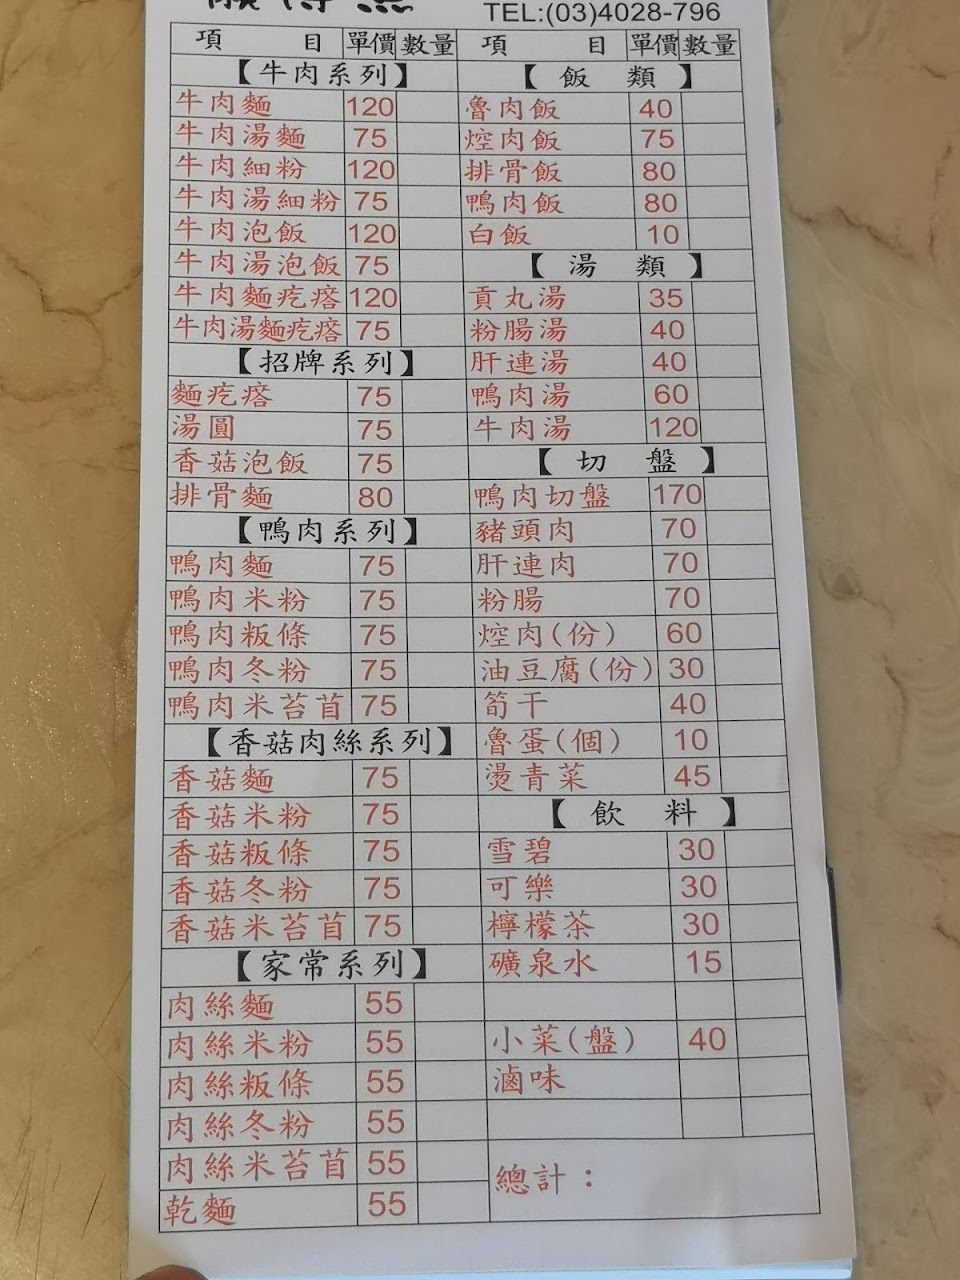 TEL:(03)4028-796
項 目 單價 數量
【牛肉系列】
牛肉麵 120
牛肉湯麵 75
牛肉細粉 120
牛肉湯細粉 75
牛肉泡飯 120
牛肉湯泡飯 75
牛肉麵疙瘩 120
牛肉湯麵疙瘩 75
【招牌系列】
麵疙瘩 75
湯圓 75
香菇泡飯 75
排骨麵 80
【鴨肉系列】
鴨肉麵 75
鴨肉米粉 75
鴨肉粄條 75
鴨肉冬粉 75
鴨肉米苔苜 75
【香菇肉絲系列】
香菇麵 75
香菇米粉 75
香菇粄條 75
香菇冬粉 75
香菇米苔苜 75
【家常系列】
肉絲麵 55
肉絲米粉 55
肉絲粄條 55
肉絲冬粉 55
肉絲米苔苜 55
乾麵 55
項 目 單價 數量
【飯 類】
魯肉飯 40
焢肉飯 75
排骨飯 80
鴨肉飯 80
白飯 10
【湯 類】
貢丸湯 35
粉腸湯 40
肝連湯 40
鴨肉湯 60
牛肉湯 120
【切 盤】
鴨肉切盤 170
豬頭肉 70
肝連肉 70
粉腸 70
焢肉(份) 60
油豆腐(份) 30
筍干 40
魯蛋(個) 10
燙青菜 45
【飲 料】
雪碧 30
可樂 30
檸檬茶 30
礦泉水 15
小菜(盤) 40
滷味
總計：